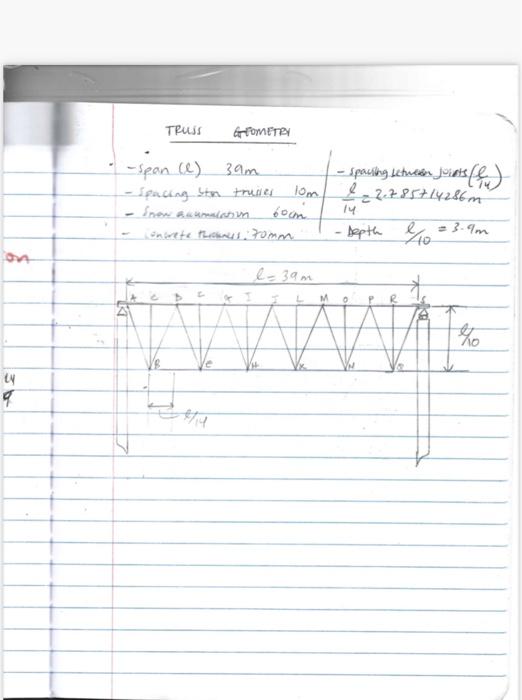 TRUSS GEOMETRY
- Span (l) 39m
- Spacing btn trusses 10m
- Snow accumulation 60cm
- Concrete thickness: 70mm
- Spacing between joints (l/14)
l/14 = 2.785714286m
- Depth l/10 = 3.9m
on
l = 39m
A C D G I J L M O P R S
l/10
B E H K N Q
l/14